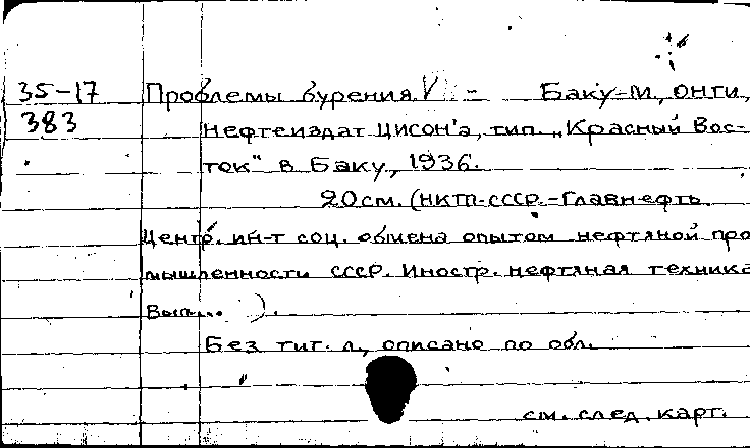 35-17 Проблемы бурения V - Баку-М, ОНТИ,
383 Нефтеиздат ЦИСОН'а, тип. „Красный Вос-
ток" в Баку, 1936.
20 см. (НКТП-СССР.-Главнефть.
Центр. ин-т соц. обмена опытом нефтяной про
мышленности СССР. Иностр. нефтяная техника
Вып... ).
Без тит. л., описано по обл.
см. след. карт.